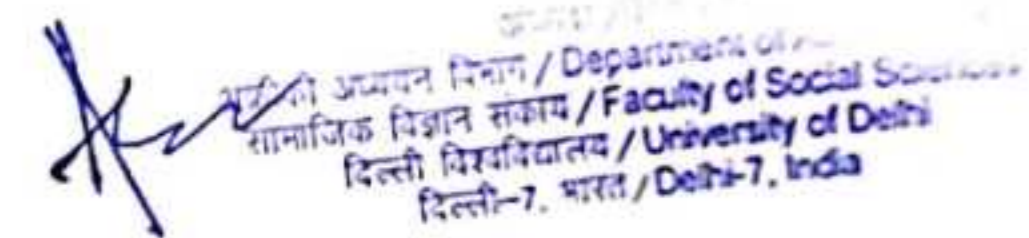 अध्ययन विभाग / Department of
सामाजिक विज्ञान संकाय / Faculty of Social Sciences
दिल्ली विश्वविद्यालय / University of Delhi
दिल्ली-7, भारत / Delhi-7, India